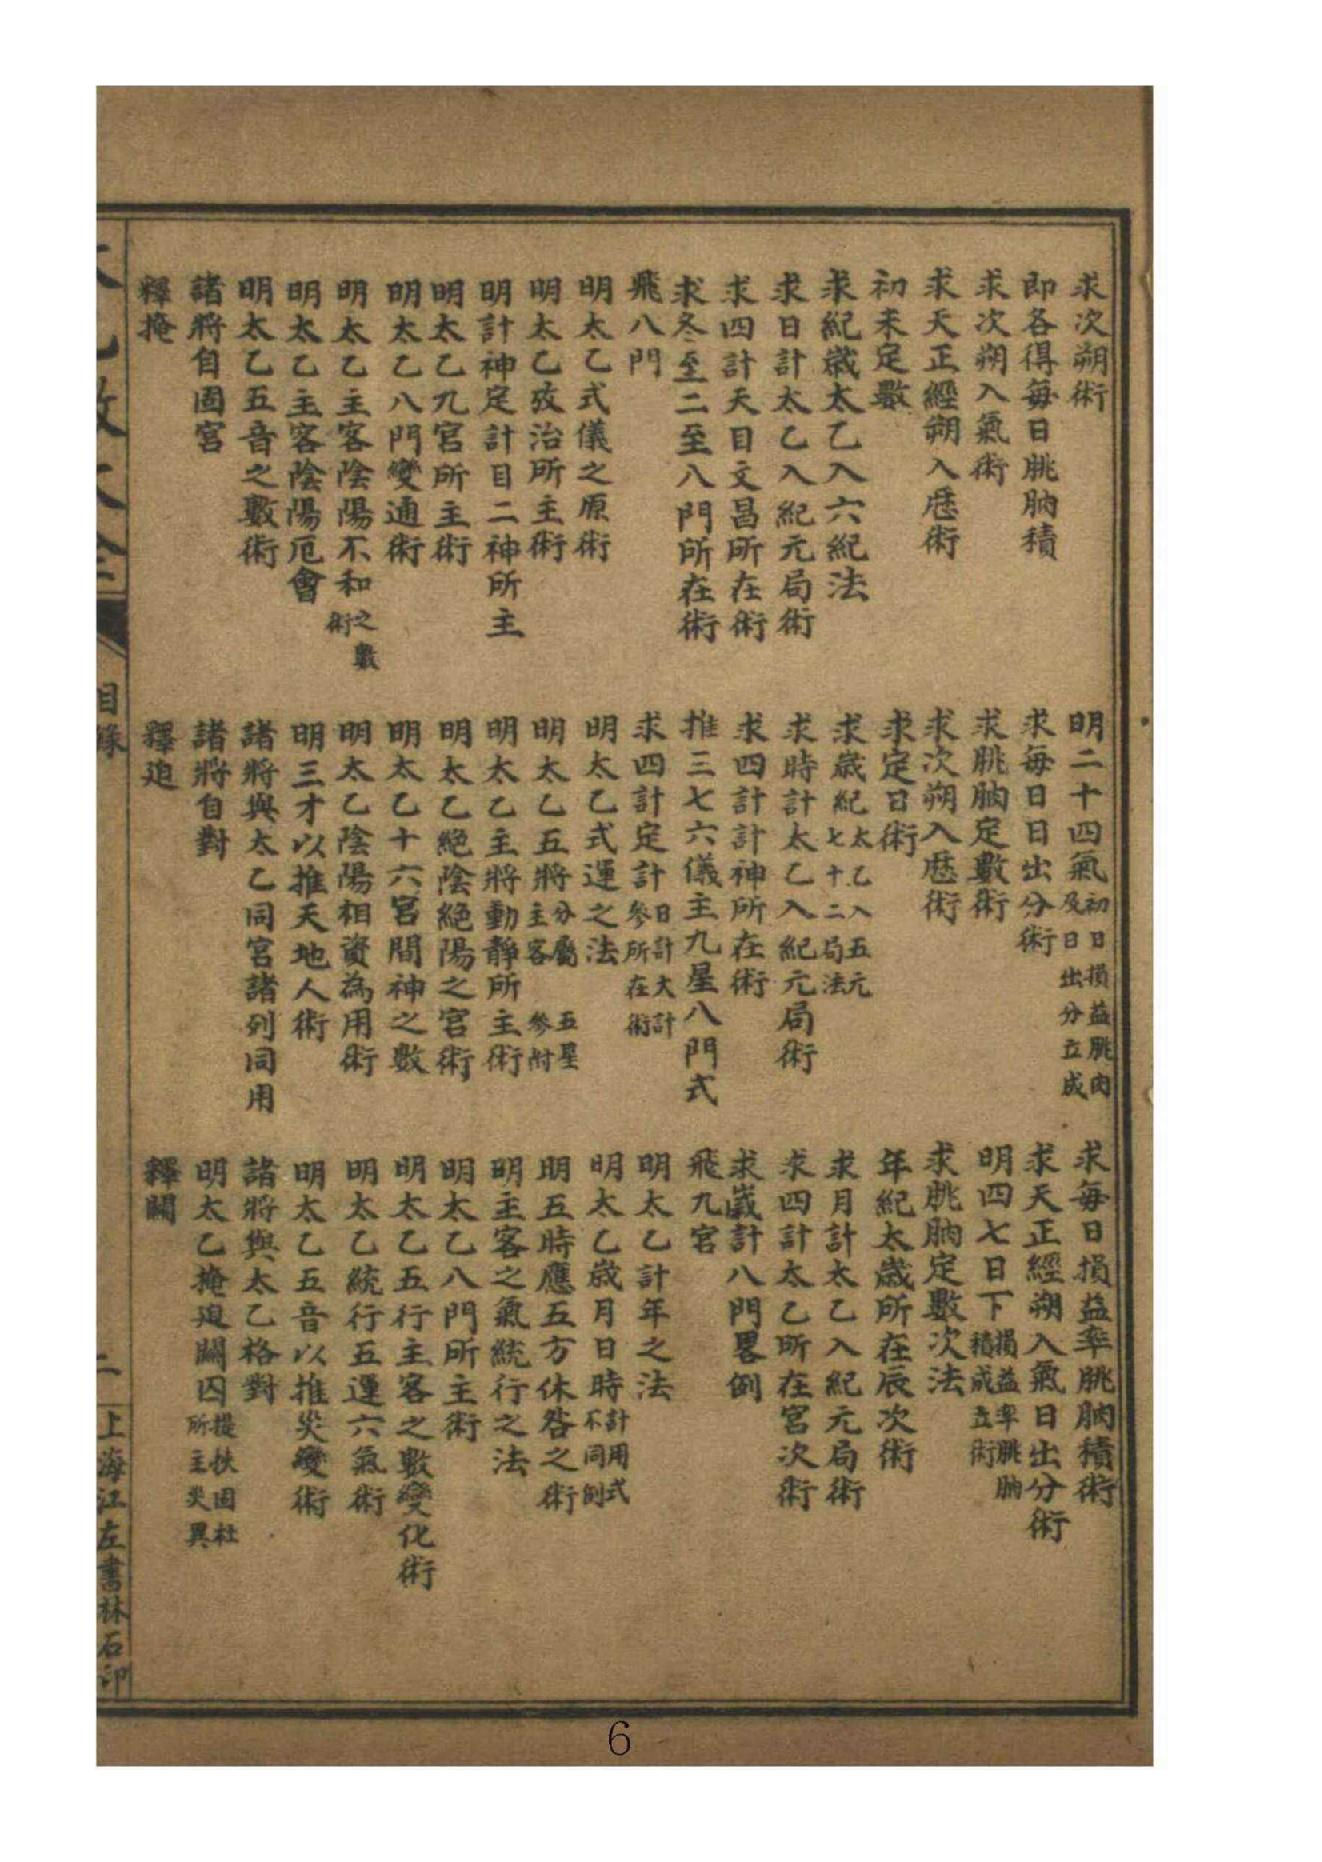 求次朔術
明二十四氣初日損益朓肉及日出分立成
求每日損益率朓朒積術
即各得每日朓朒積
求每日日出分術
求天正經朔入氣日出分術
求次朔入氣術
求朓朒定數術
明四七日下損益率朓朒積成立術
求天正經朔入歷術
求次朔入歷術
求朓朒定數次法
初末定數
求定日術
年紀太歲所在辰次術
求紀歲太乙入六紀法
求歲紀太乙入五元七十二局法
求月計太乙入紀元局術
求日計太乙入紀元局術
求時計太乙入紀元局術
求四計太乙所在宮次術
求四計天目文昌所在術
求四計計神所在術
求歲計八門畧例
求冬至二至八門所在術
推三七六儀主九星八門式
飛九宮
飛八門
求四計定計日計大計參所在術
明太乙計年之法
明太乙式儀之原術
明太乙式運之法
明太乙歲月日時計用式不同例
明太乙攷治所主術
明太乙五將分屬主客五星參附
明五時應五方休咎之術
明計神定計目二神所主
明太乙主將動靜所主術
明主客之氣統行之法
明太乙九宮所主術
明太乙絕陰絕陽之宮術
明太乙八門所主術
明太乙八門變通術
明太乙十六宮間神之數
明太乙五行主客之數變化術
明太乙主客陰陽不和之數術
明太乙陰陽相資為用術
明太乙統行五運六氣術
明太乙主客陰陽厄會
明三才以推天地人術
明太乙五音以推災變術
明太乙五音之數術
諸將與太乙同宮諸列同用
諸將與太乙格對
諸將自固宮
諸將自對
明太乙掩迫關囚提挾固杜所主災異
釋掩
釋迫
釋關
太乙數大全
目錄
二
上海江左書林石印
6